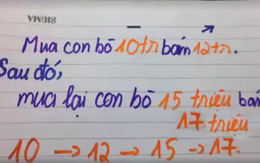 Mua con bò 10tr bán 12tr.
Sau đó,
mua lại con bò 15 triệu bá
17 triệu
10 → 12 → 15 → 17